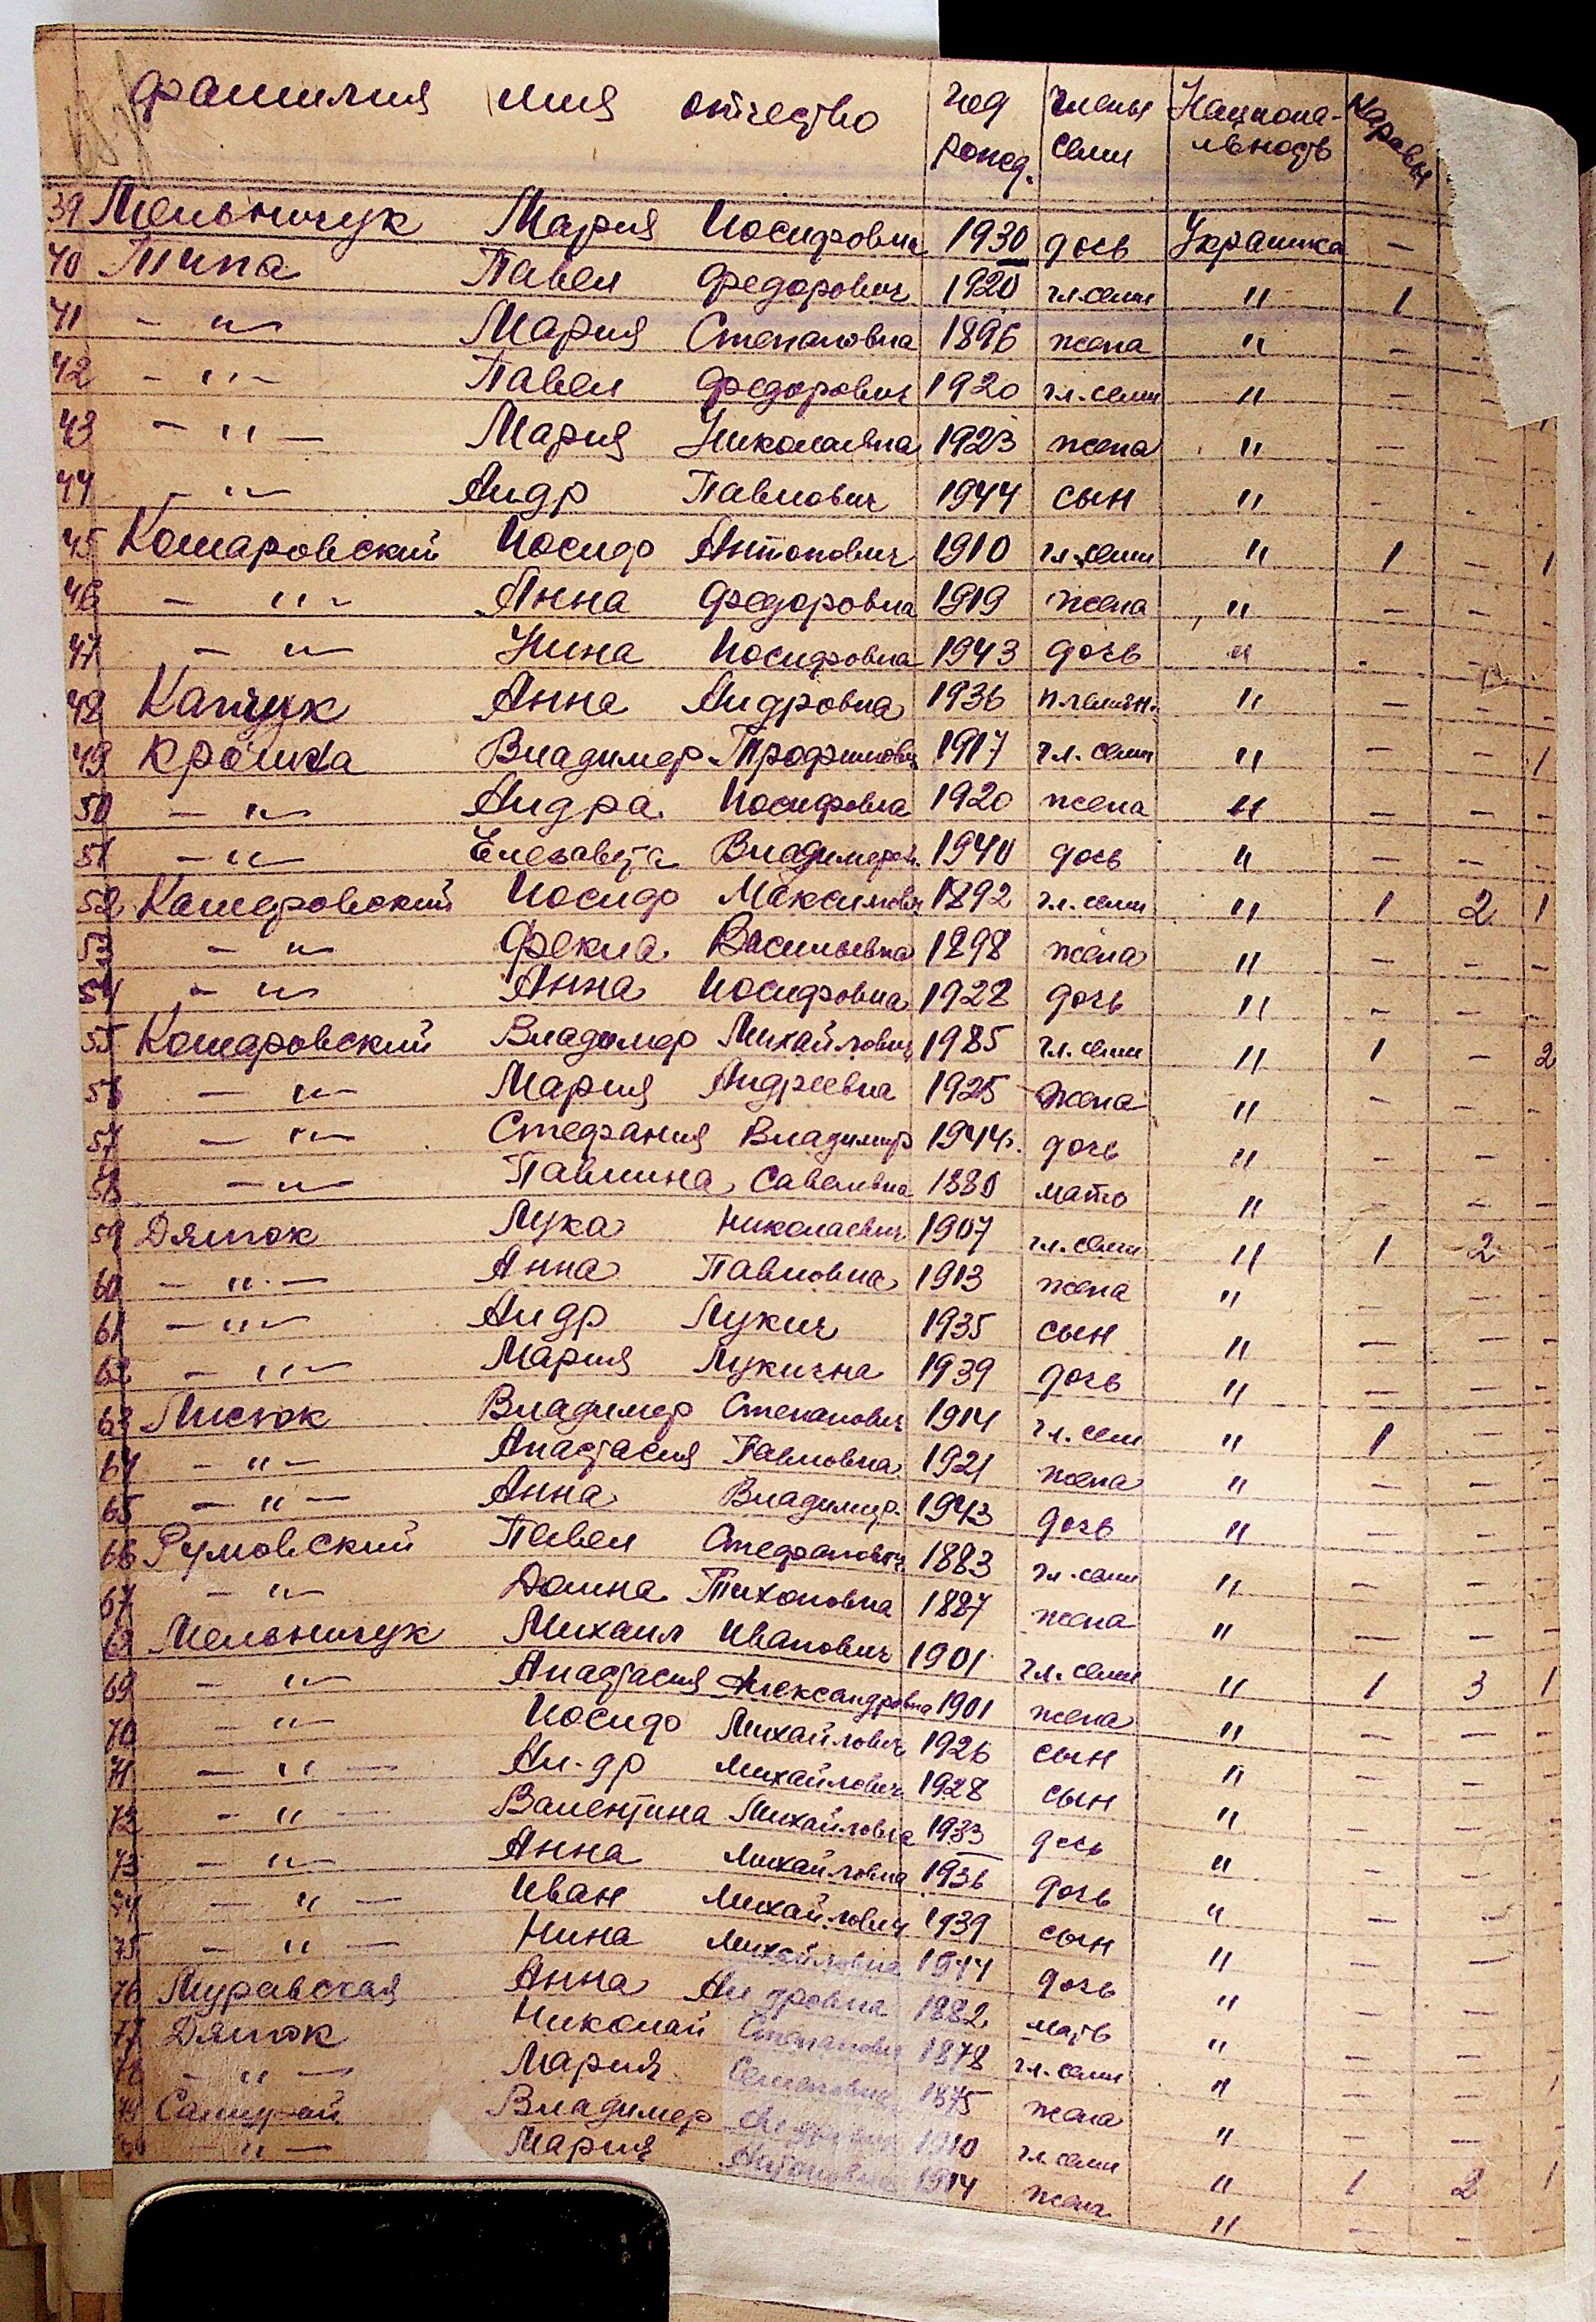 фамилия имя отчество год рожд. члены семи Национа-льность Коровы
39 Мельничук Мария Иосифовна 1930 дочь Украинка –
40 Типа Павел Федорович 1920 гл. семи " 1
41 – " – Мария Степановна 1896 жена " –
42 – " – Павел Федорович 1920 гл. семи " – –
43 – " – Мария Николаевна 1923 жена " – –
44 – " – Андр Павлович 1944 сын " – – –
45 Комаровский Иосиф Антонович 1910 гл. семи " 1 – 1
46 – " – Анна Федоровна 1919 жена " – – –
47 – " – Нина Иосифовна 1943 дочь " – –
48 Капчук Анна Андровна 1936 племян. " – – –
49 Крошка Владимер Трофимович 1917 гл. семи " – – 1
50 – " – Андра Иосифовна 1920 жена " – – –
51 – " – Елезавета Владимеров. 1940 дочь " – – –
52 Комаровский Иосиф Максимович 1892 гл. семи " 1 2 1
53 – " – Фекла Васильевна 1898 жена " – – –
54 – " – Анна Иосифовна 1928 дочь " – – –
55 Комаровский Владимер Михайлович 1985 гл. семи " 1 – 2
56 – " – Мария Андреевна 1925 жена " – – –
57 – " – Стефания Владимир 1944г. дочь " – – –
58 – " – Павлина Савельевна 1880 мать " – – –
59 Дяток Лука Николаевич 1907 гл. семи " 1 2 –
60 – " – Анна Павловна 1913 жена " – – –
61 – " – Андр Лукич 1935 сын " – – –
62 – " – Мария Лукична 1939 дочь " – – –
63 Листок Владимер Степанович 1914 гл. сем " 1 – –
64 – " – Анастасия Павловна 1921 жена " – – –
65 – " – Анна Владимир. 1943 дочь " – – –
66 Румовский Павел Стефанович 1883 гл. семи " – – –
67 – " – Домна Тихоновна 1887 жена " – – –
68 Мельничук Михаил Иванович 1901 гл. семи " 1 3 1
69 – " – Анастасия Александровна 1901 жена " – – –
70 – " – Иосиф Михайлович 1926 сын " – – –
71 – " – Ан-др Михайлович 1928 сын " – – –
72 – " – Валентина Михайловна 1933 дочь " – – –
73 – " – Анна Михайловна 1936 дочь " – – –
74 – " – Иван Михайлович 1939 сын " – –
75 – " – Нина Михайловна 1944 дочь " – –
76 Муравская Анна Андровна 1882 мать " – –
77 Дяток Николай Степанович 1878 гл. семи " – – 1
78 – " – Мария Семеновна 1875 жена " – –
79 Владимер 1910 гл. семи " 1 2 1
80 – " – Мария Антоновна 1914 жена " – – –